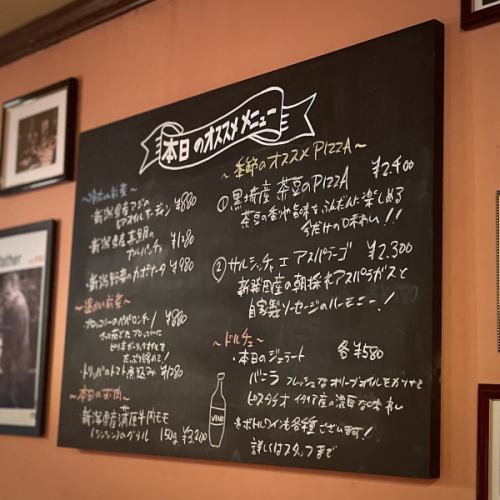 本日のオススメメニュー
～冷たいお菜～
・新潟県産アジの
オイルサーディン ¥880
・新潟県産真鯛の
カルパッチョ ¥1280
・新潟野菜のカポナータ ¥980
～温かいお菜～
・ブロッコリーのペペロンチーノ ¥880
ブロッコリーに
ピリ辛ガーリックオイルを
たっぷり絡めて!
・トリッパのトマト煮込み ¥1280
～本日のお肉～
新潟県産蒲原牛内モモ
のグリル 150g ¥3,200
～季節のオススメPIZZA～
①黒埼産 茶豆のPIZZA ¥2,400
茶豆の香りや旨味をふんだんに楽しめる
今だけの味わい!!
②サルシッチャ エ アスパラーゴ ¥2,300
新発田産の朝採れアスパラガスと
自家製ソーセージのハーモニー!
～ドルチェ～
・本日のジェラート 各¥580
バニラ フレッシュなオリーブオイルをかけて
ピスタチオ イタリア産の濃厚な味わい
※ボトルワインも各種ございます!
詳しくはスタッフまで
VINO
ather